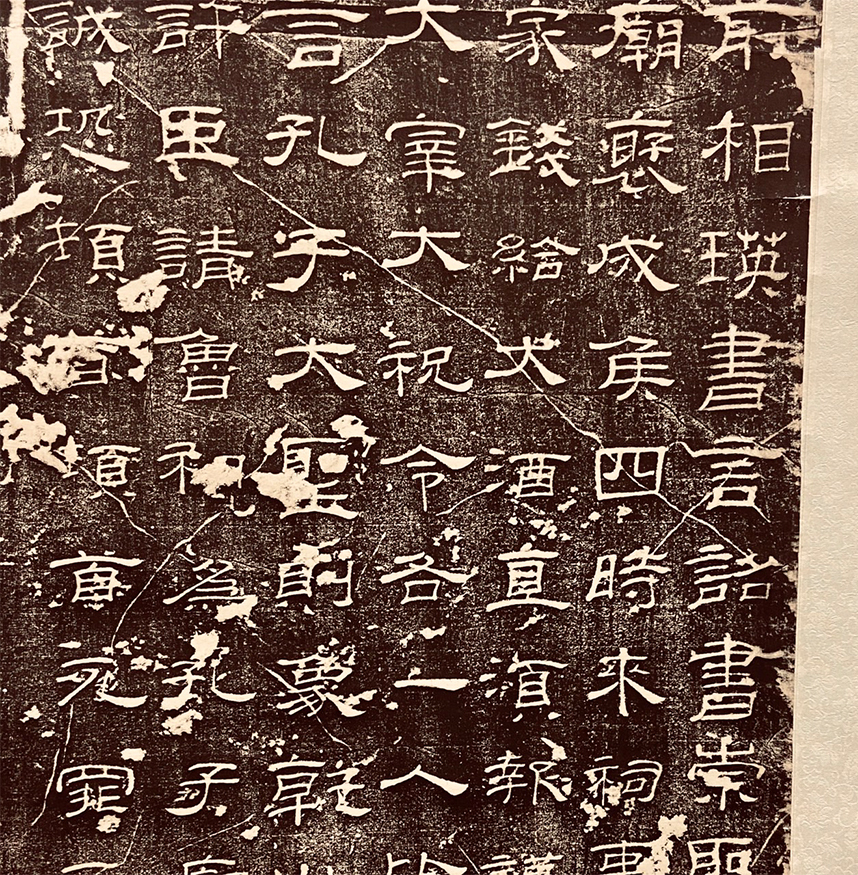 前相瑛書言詔書崇聖
廟褒成侯四時來祠事
家錢給犬酒直須報謹
大宰大祝令各一人皆
言孔子大聖則象乾
許臣請魯相為孔子
誠恐頓首頓首死罪